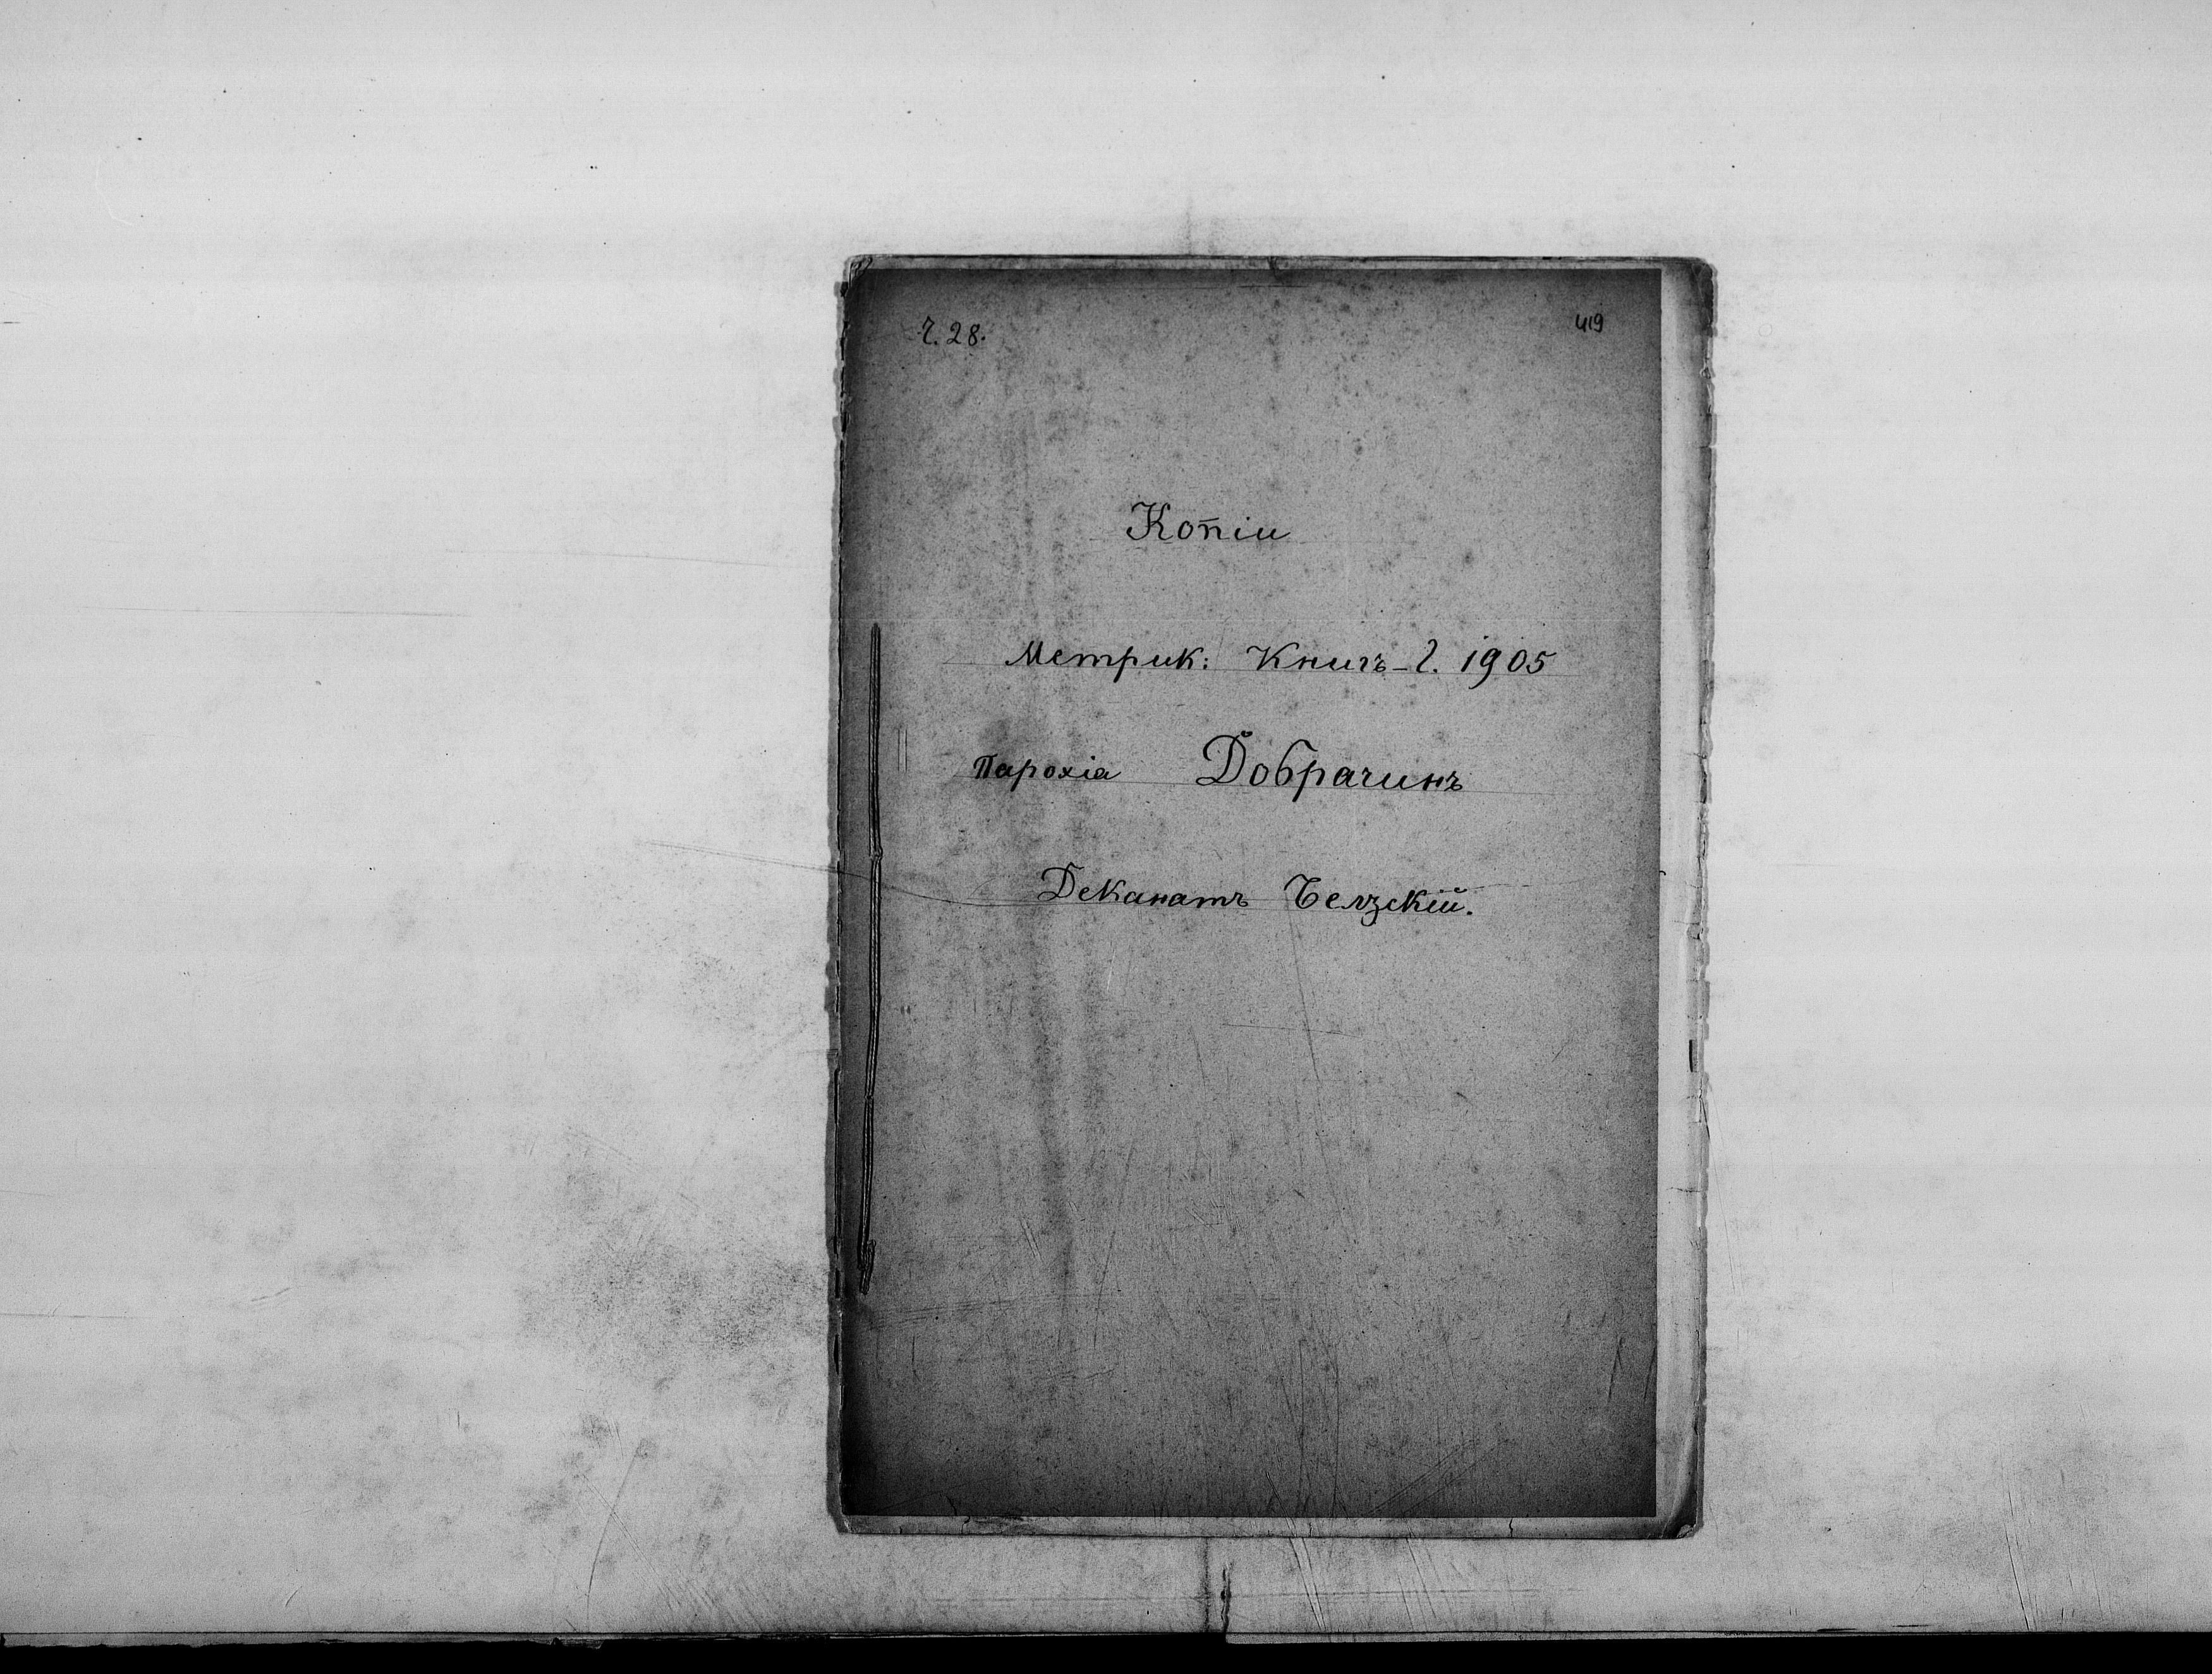 Ч. 28.
419
Копіи
Метрик: Книгъ - г. 1905
Парохіа Добрачинъ
Деканатъ Белзскій.